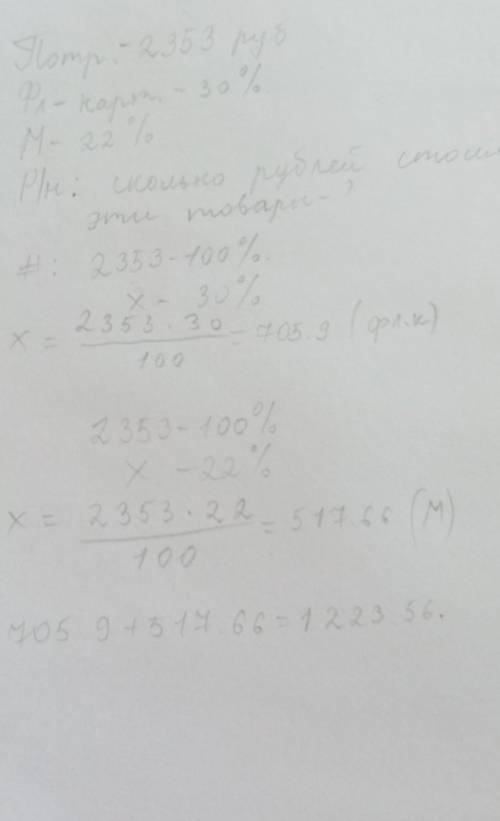 Потр. - 2353 руб
Фл - карт. - 30%
М - 22%
Р/н: сколько рублей стоил
эти товары - ?
#: 2353 - 100%.
x - 30%
x = 2353 · 30 / 100 = 705.9 (фл.к)
2353 - 100%
x - 22%
x = 2353 · 22 / 100 = 517.66 (М)
705.9 + 517.66 = 1223.56.